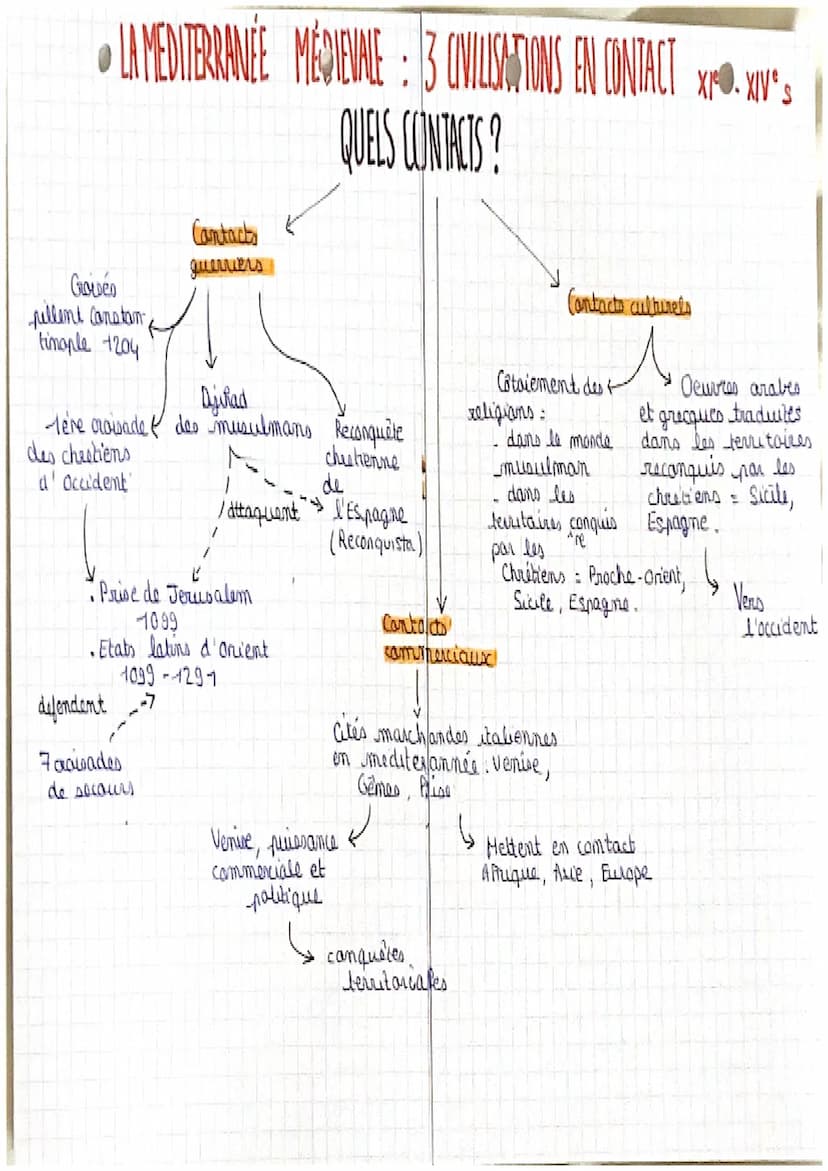 LA MEDITERRANÉE MÉDIEVALE : 3 CIVILISATIONS EN CONTACT XIe - XIVe s
QUELS CONTACTS ?
Contacts
guerriers
Croisés
pillent Constan-
tinople 1204
1ère croisade
des chrétiens
d'Occident
Djihad
des musulmans
Reconquête
chretienne
de
l'Espagne
(Reconquista)
attaquent
. Prise de Jerusalem
1099
. Etats latins d'orient
1099 - 1291
défendent
7 croisades
de secours
Contacts culturels
Côtoiement des
religions :
- dans le monde
musulman
- dans les
territaires conquis
re
par les
Chrétiens = Proche-Orient,
Sicile, Espagne.
Oeuvres arabes
et grecques traduites
dans les territoires
reconquis par les
chrétiens = Sicile,
Espagne.
Vers
l'occident
Contacts
commerciaux
Cités marchandes italiennes
en mediterannée : Venise,
Gênes, Pise
Venise, puissance
commerciale et
politique
conquêtes
territoriales
Mettent en contact
Afrique, Asie, Europe